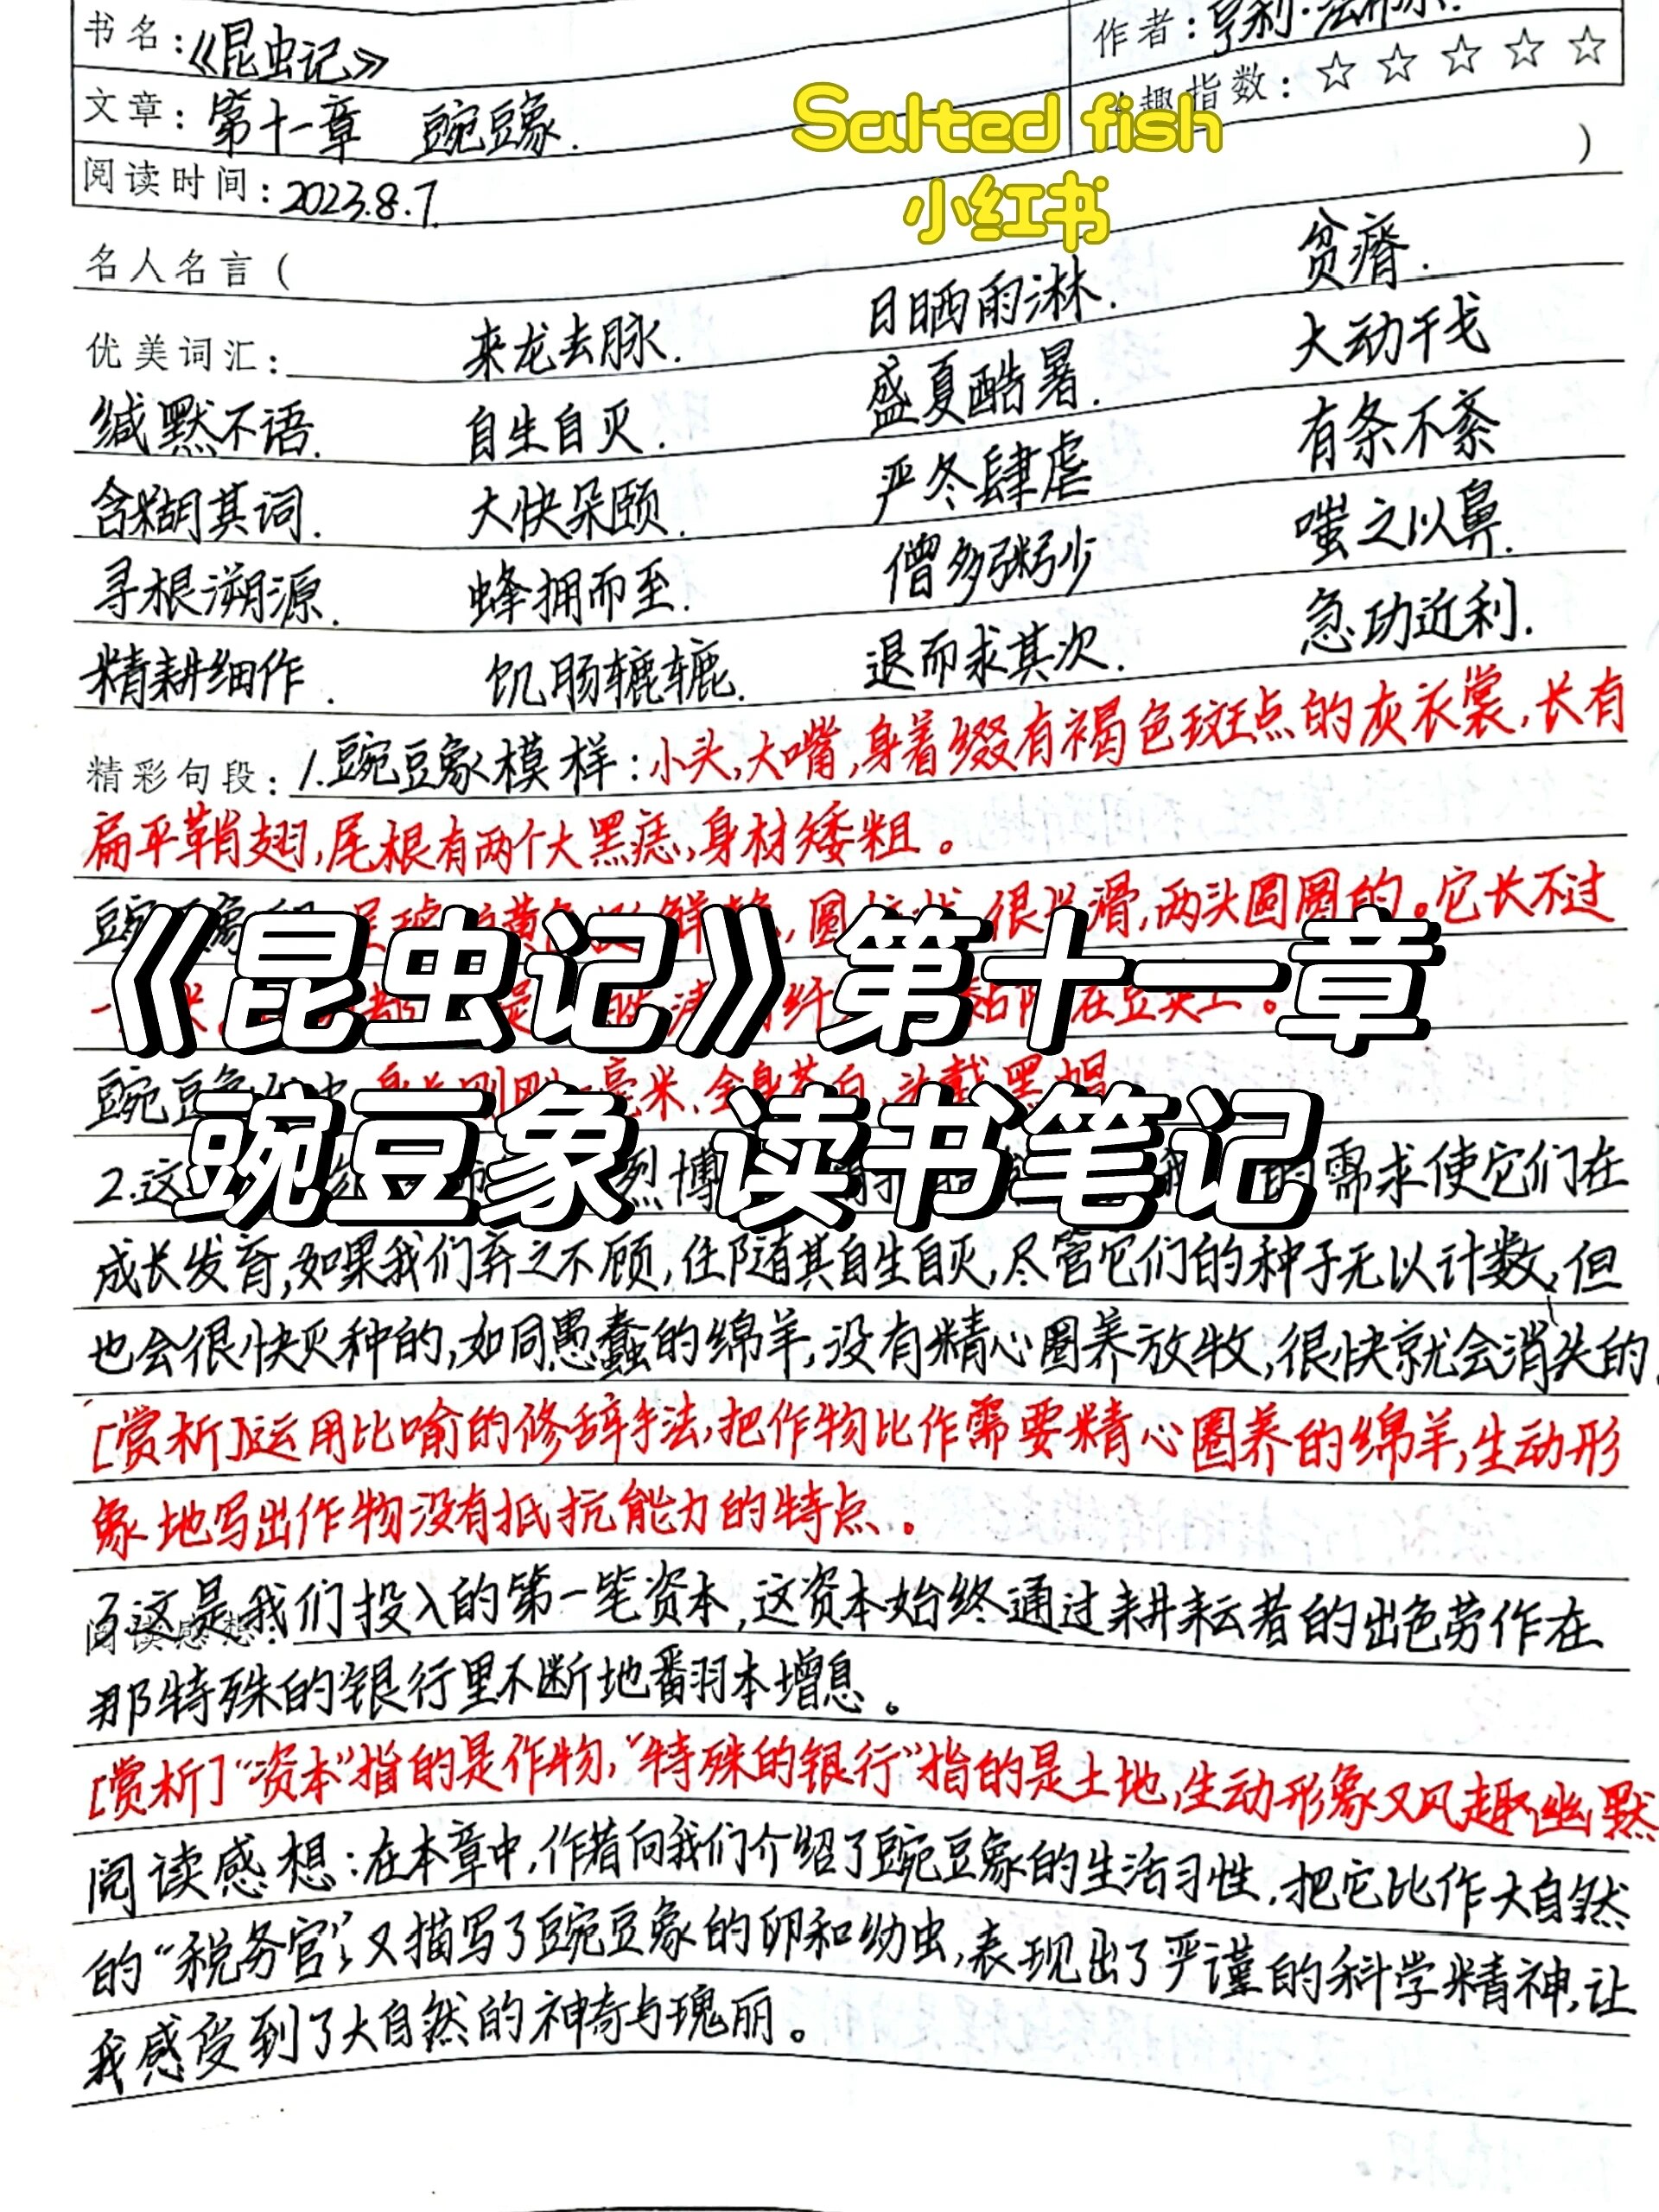 书名：《昆虫记》
作者：亨利·
文章：第十一章 豌豆象.
趣指数：☆☆☆☆☆
Salted fish
小红书
阅读时间：2023.8.7.
名人名言（ ）
优美词汇： 来龙去脉. 日晒雨淋. 贫瘠.
缄默不语. 自生自灭. 盛夏酷暑. 大动干戈
含糊其词. 大快朵颐. 严冬肆虐 有条不紊
寻根溯源. 蜂拥而至. 僧多粥少 嗤之以鼻.
精耕细作. 饥肠辘辘. 退而求其次. 急功近利.
精彩句段：1.豌豆象模样：小头,大嘴,身着缀有褐色斑点的灰衣裳,长有
扁平鞘翅,尾根有两个大黑痣,身材矮粗。
豌 很光滑,两头圆圆的。它长不过
在豆荚上。
《昆虫记》第十一章
豌豆 毫米、全身苍白、头戴黑帽
豌豆象 读书笔记
2.这 烈 博 的需求使它们在
成长发育,如果我们弃之不顾,任随其自生自灭,尽管它们的种子无以计数,但
也会很快灭种的,如同愚蠢的绵羊,没有精心圈养放牧,很快就会消失的.
[赏析]运用比喻的修辞手法,把作物比作需要精心圈养的绵羊,生动形
象地写出作物没有抵抗能力的特点。
3.这是我们投入的第一笔资本,这资本始终通过耕耘者的出色劳作在
阅读感想：
那特殊的银行里不断地翻本增息。
[赏析]“资本”指的是作物,“特殊的银行”指的是土地,生动形象又风趣幽默
阅读感想：在本章中,作者向我们介绍了豌豆象的生活习性,把它比作大自然
的“税务官”,又描写了豌豆象的卵和幼虫,表现出了严谨的科学精神,让
我感受到了大自然的神奇与瑰丽。